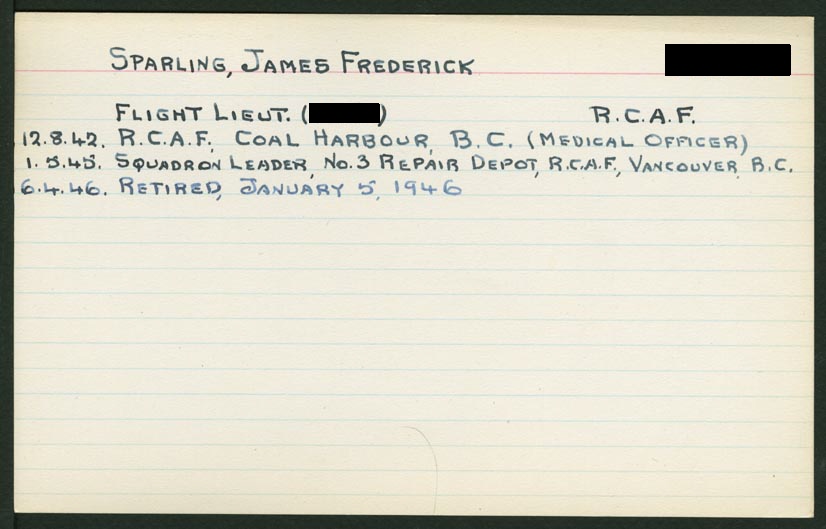 SPARLING, JAMES FREDERICK
FLIGHT LIEUT. ( ) R.C.A.F.
12.8.42. R.C.A.F, COAL HARBOUR, B.C. (MEDICAL OFFICER)
1.5.45. SQUADRON LEADER, NO.3 REPAIR DEPOT, R.C.A.F., VANCOUVER, B.C.
6.4.46. RETIRED, JANUARY 5, 1946